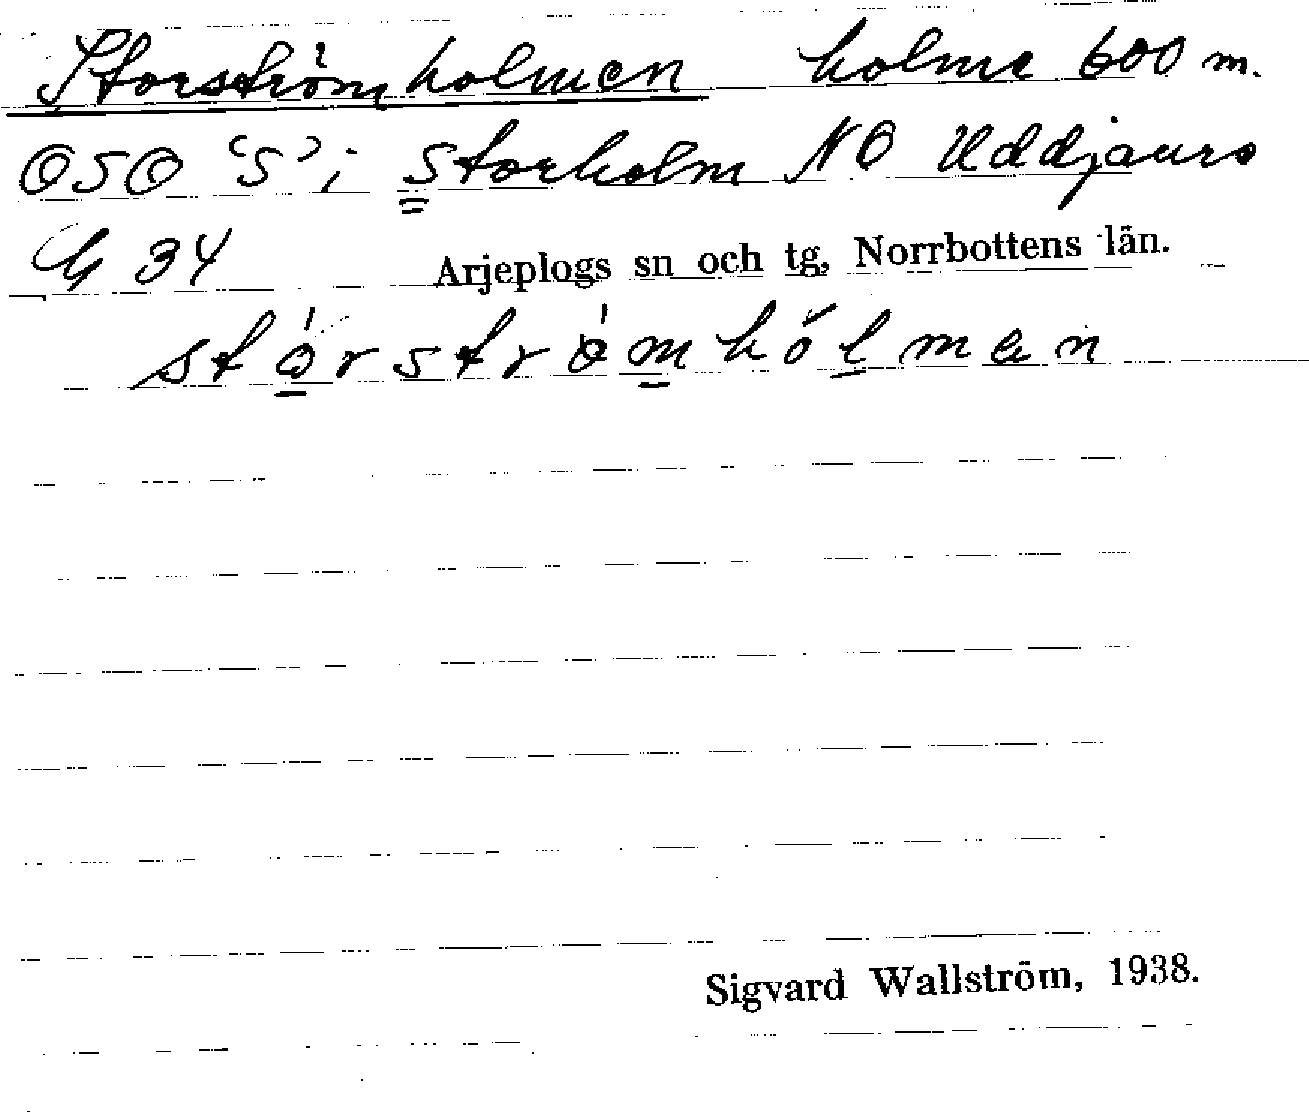 Storströmholmen holme 600 m.
OSO 'S' i Storholm NO Uddjaure
G 34 Arjeplogs sn och tg, Norrbottens län.
stórströmhólmen
Sigvard Wallström, 1938.